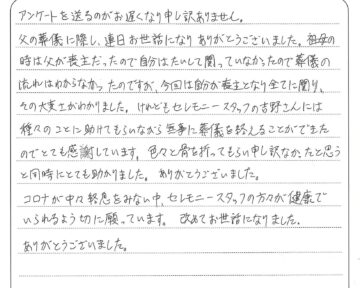 アンケートを送るのがお遅くなり申し訳ありません。
父の葬儀に際し、連日お世話になり ありがとうございました。祖母の
時は父が喪主だったので自分はたいして関っていなかったので葬儀の
流れはわからなかったのですが、今回は自分が喪主となり全てに関り、
その大変さがわかりました。けれどもセレモニースタッフの吉野さんには
種々のことに助けてもらいながら無事に葬儀を終えることができた
のでとても感謝しています。色々と骨を折ってもらい申し訳なかったと思う
と同時にとても助かりました。ありがとうございました。
コロナが中々終息をみない中、セレモニースタッフの方々が健康で
いられるよう切に願っています。改めてお世話になりました。
ありがとうございました。